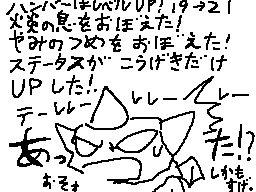 ハンバーはレベルUP! 19→21
火炎の息をおぼえた!
やみのつめをおぼえた!
ステータスがこうげきだけ
UPした!
テーレレーレレーレレー
あっ
た!?
おそォ
しかも
すげ。